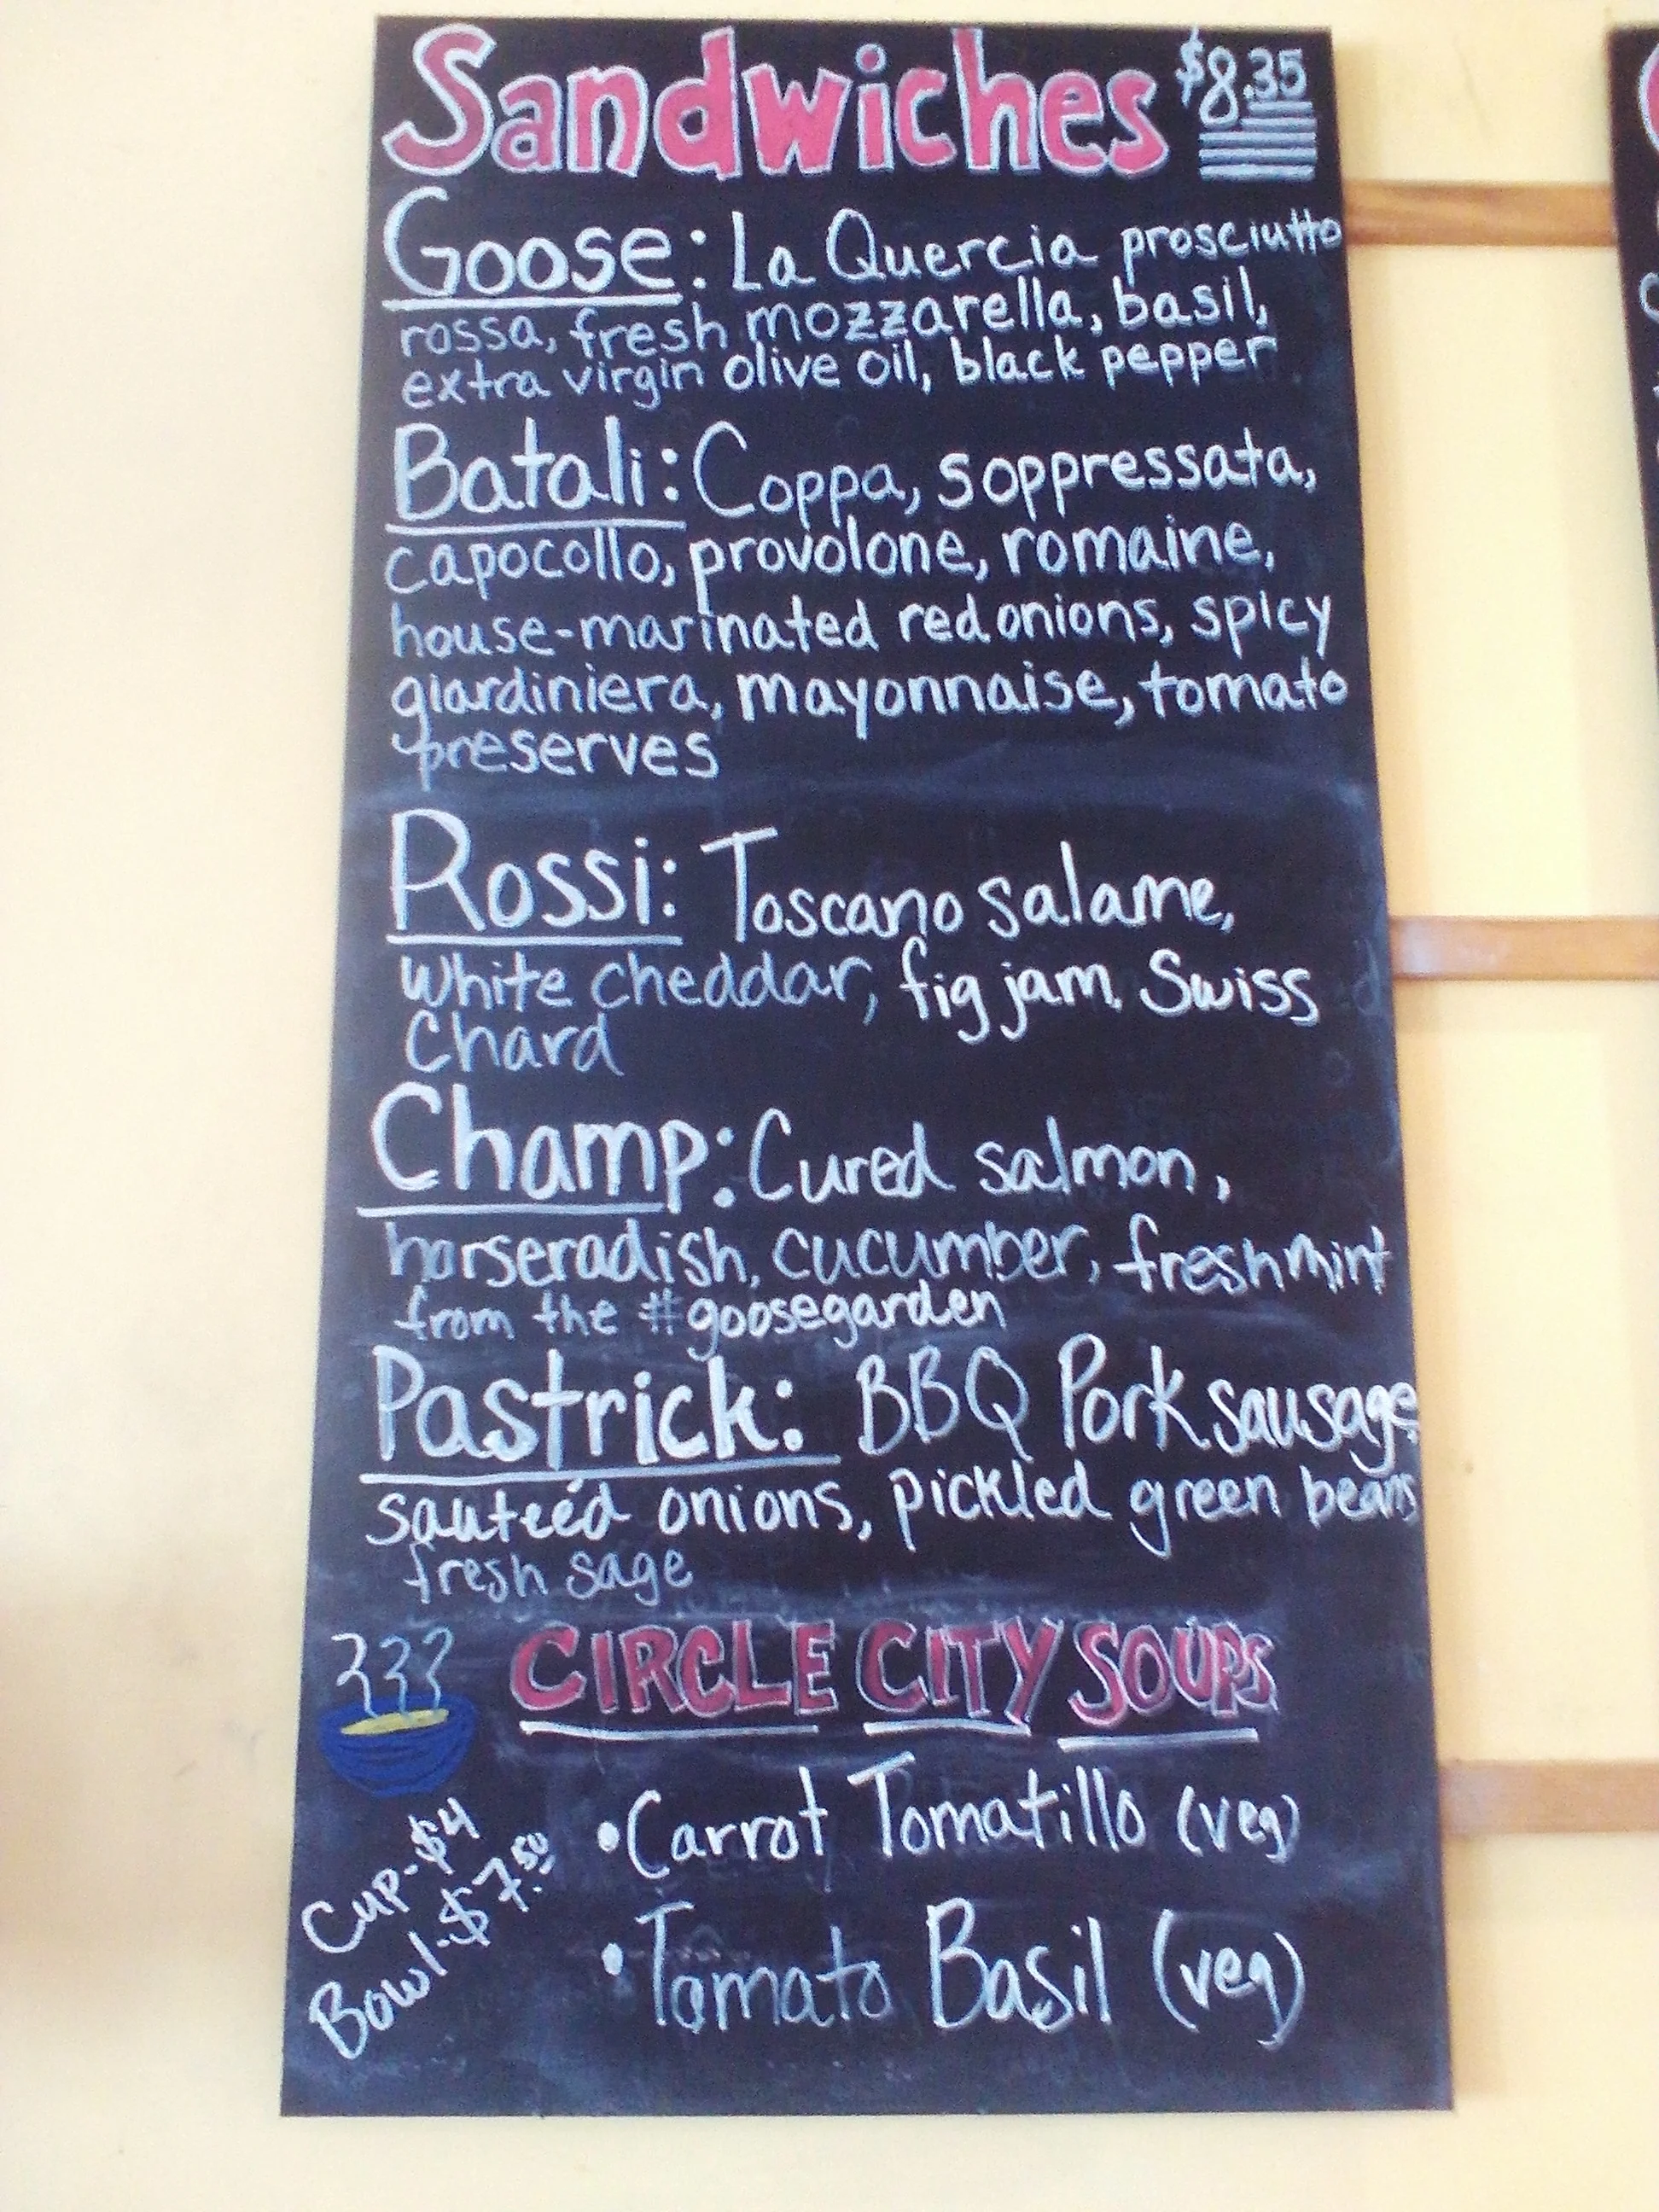 Sandwiches $8.35
Goose: La Quercia prosciutto
rossa, fresh mozzarella, basil,
extra virgin olive oil, black pepper
Batali: Coppa, soppressata,
capocollo, provolone, romaine,
house-marinated red onions, spicy
giardiniera, mayonnaise, tomato
preserves
Rossi: Toscano salame,
white cheddar, fig jam, Swiss
Chard
Champ: Cured salmon,
horseradish, cucumber, fresh mint
from the #goosegarden
Pastrick: BBQ Pork sausage
sauteéd onions, pickled green beans
fresh sage
CIRCLE CITY SOUPS
Cup-$4
Bowl-$7.50
•Carrot Tomatillo (veg)
•Tomato Basil (veg)